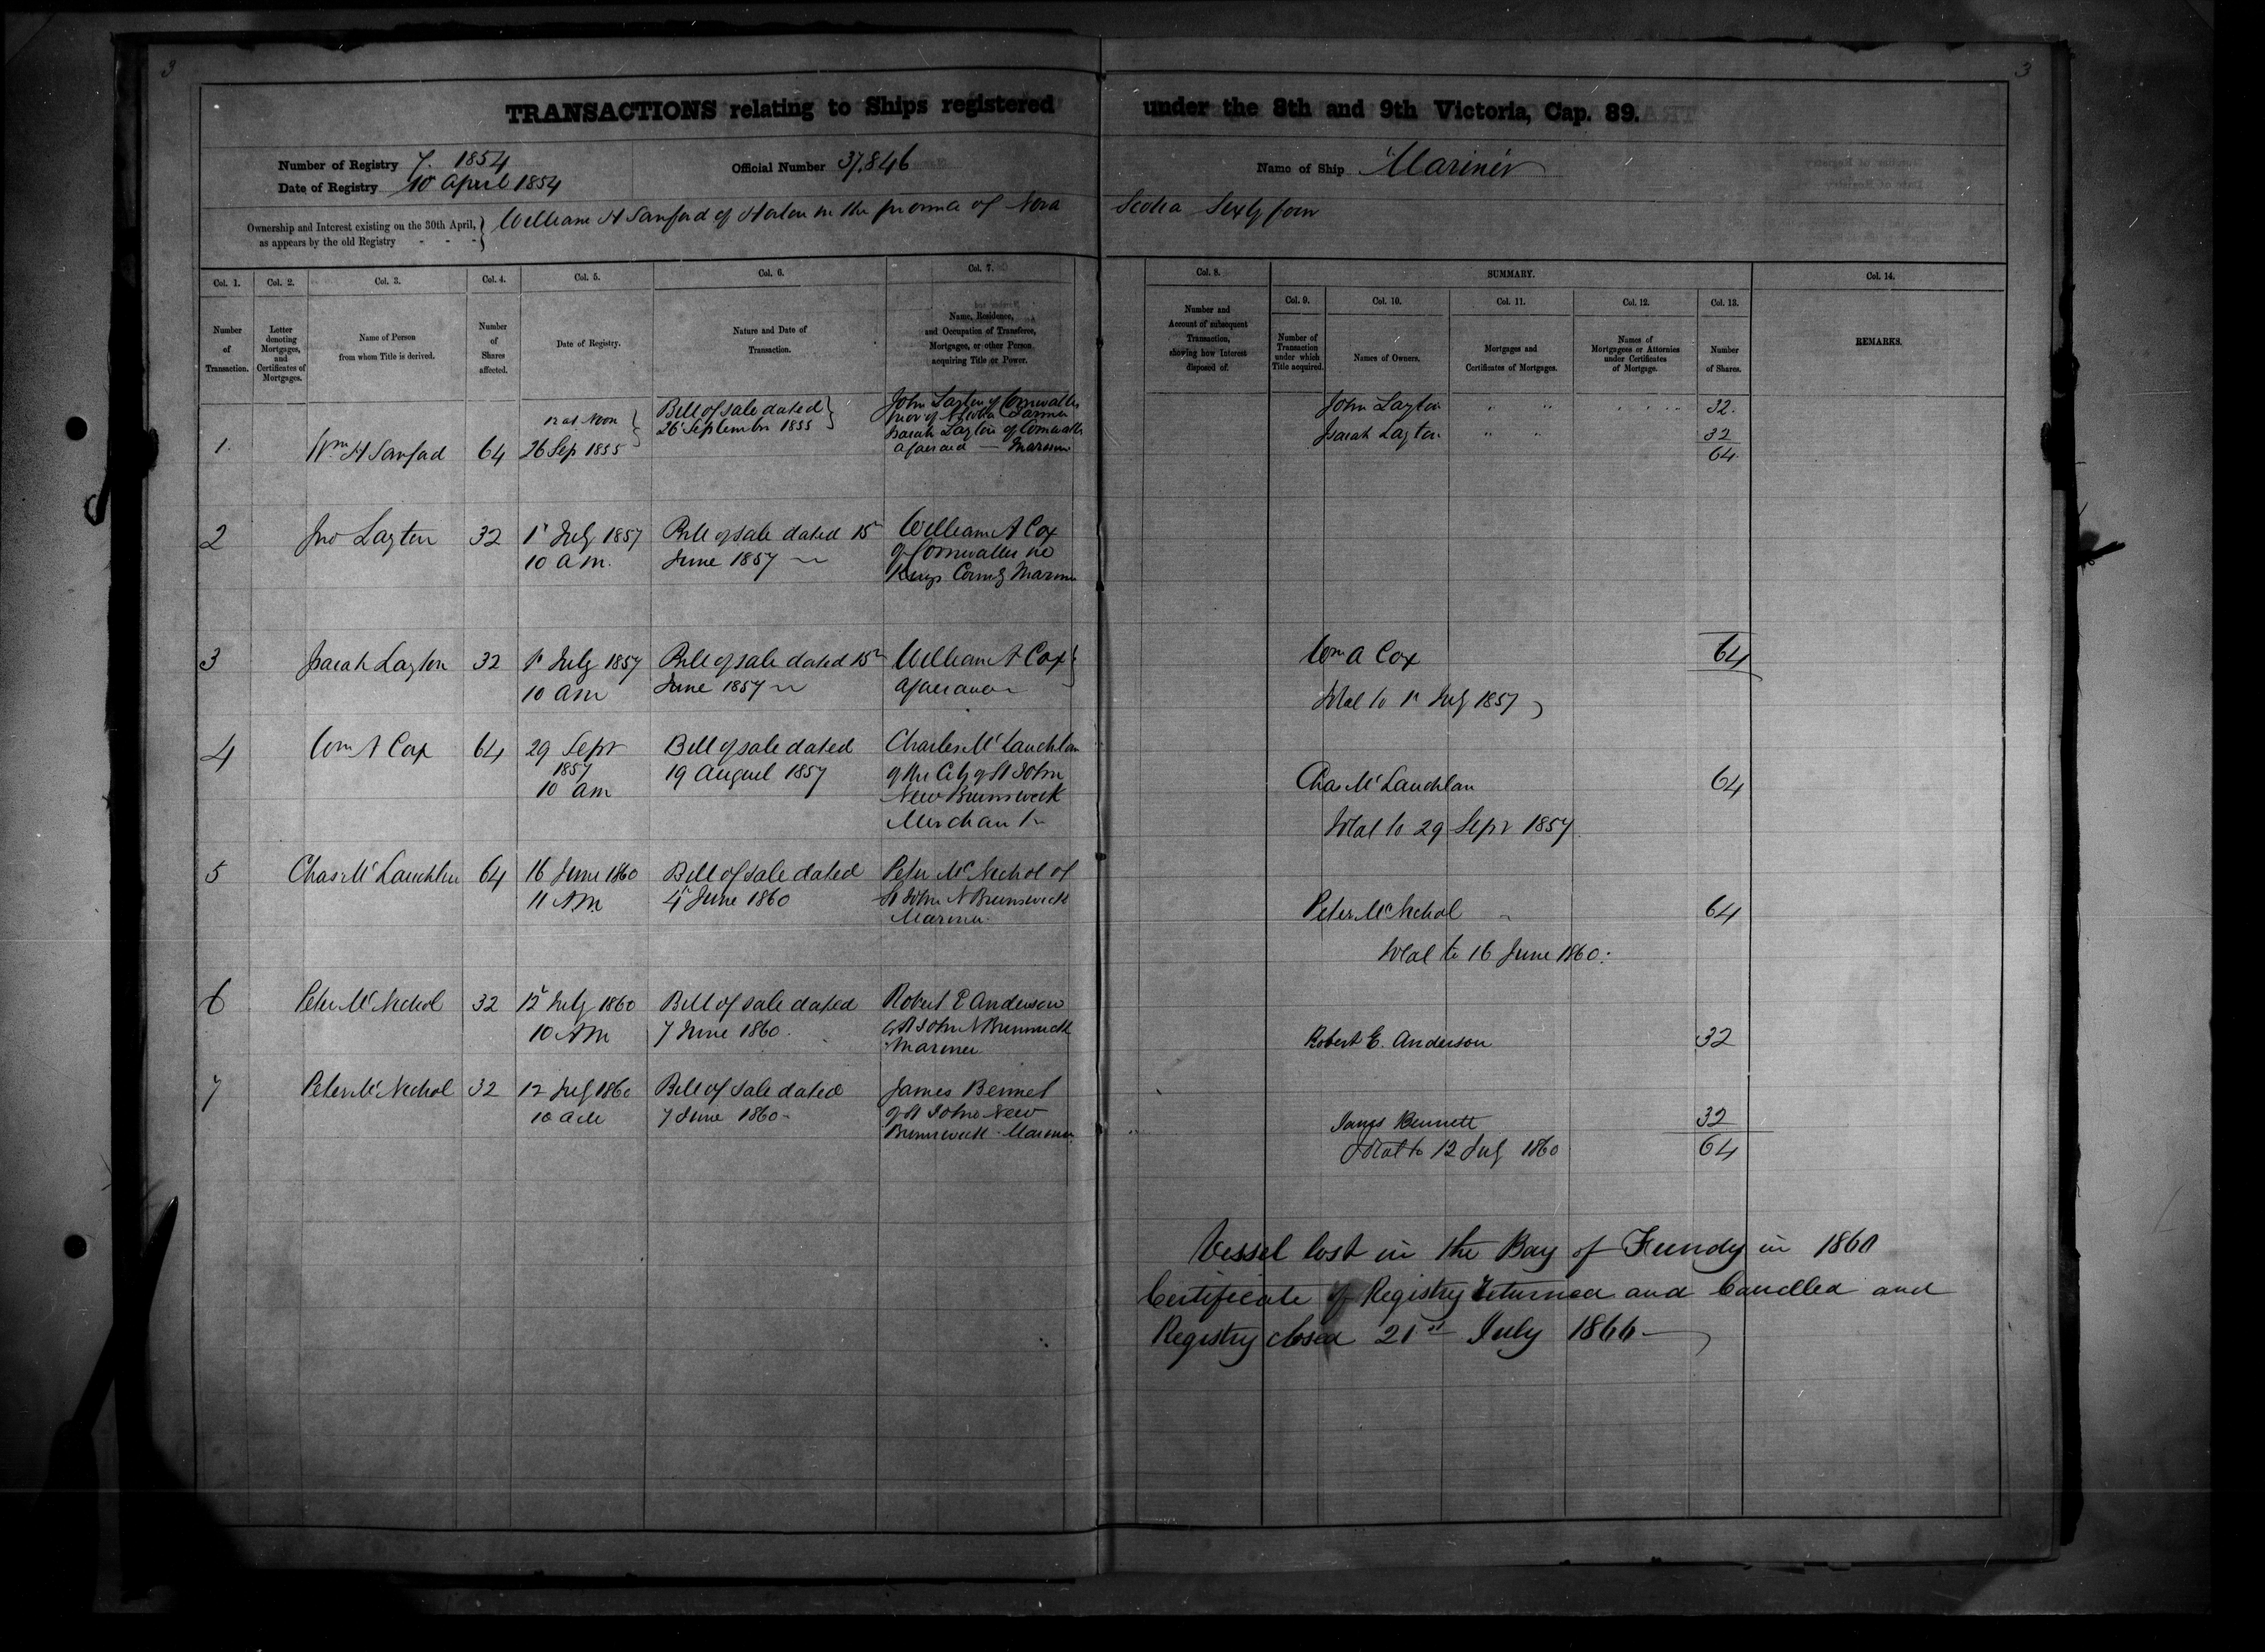 3
3
TRANSACTIONS relating to Ships registered under the 8th and 9th Victoria, Cap. 89.
Number of Registry 7. 1854
Official Number 37,846
Name of Ship Mariner
Date of Registry 10 April 1854
Ownership and Interest existing on the 30th April, as appears by the old Registry - - -
William H Sanford of Horton in the province of Nova Scotia Sixty four
Col. 1. Col. 2. Col. 3. Col. 4. Col. 5. Col. 6. Col. 7. Col. 8. SUMMARY. Col. 14.
Col. 9. Col. 10. Col. 11. Col. 12. Col. 13.
Number of Transaction.
Letter denoting Mortgages, and Certificates of Mortgages.
Name of Person from whom Title is derived.
Number of Shares affected.
Date of Registry.
Nature and Date of Transaction.
Name, Residence, and Occupation of Transferee, Mortgagee, or other Person acquiring Title or Power.
Number and Account of subsequent Transaction, showing how Interest disposed of.
Number of Transaction under which Title acquired.
Names of Owners.
Mortgages and Certificates of Mortgages.
Names of Mortgagees or Attornies under Certificates of Mortgage.
Number of Shares.
REMARKS.
1. Wm H Sanford 64
12 at Noon
26 Sep 1855
Bill of sale dated
26 September 1855
John Layton of Cornwallis
Prov of N Scotia Farmer
Isaiah Layton of Cornwallis
aforesaid — Mariner
John Layton " " 32.
Isaiah Layton " " 32
64.
2 Jno Layton 32
1st July 1857
10 am.
Bill of sale dated 15th
June 1857
William A Cox
of Cornwallis
Kings County Mariner
3 Isaiah Layton 32
1st July 1857
10 am
Bill of sale dated 15th
June 1857
William A Cox
aforesaid
Wm A Cox 64
Total to 1st July 1857
4 Wm A Cox 64
29 Sepr
1857
10 am
Bill of sale dated
19 August 1857
Charles McLauchlan
of the City of St John
New Brunswick
Merchant
Chas McLauchlan 64
Total to 29 Sepr 1857
5 Chas McLauchlan 64
16 June 1860
11 AM
Bill of sale dated
4th June 1860
Peter McNichol of
St John N Brunswick
Mariner
Peter McNichol 64
Total to 16 June 1860.
6 Peter McNichol 32
12 July 1860
10 AM
Bill of sale dated
7 June 1860.
Robert E Anderson
of St John N Brunswick
Mariner
Robert E. Anderson 32
7 Peter McNichol 32
12 July 1860
10 AM
Bill of sale dated
7 June 1860
James Bennet
of St John New
Brunswick Mariner
James Bennett 32
Total to 12 July 1860 64
Vessel lost in the Bay of Fundy in
Certificate of Registry returned and Cancelled and
Registry closed 21st July 1866